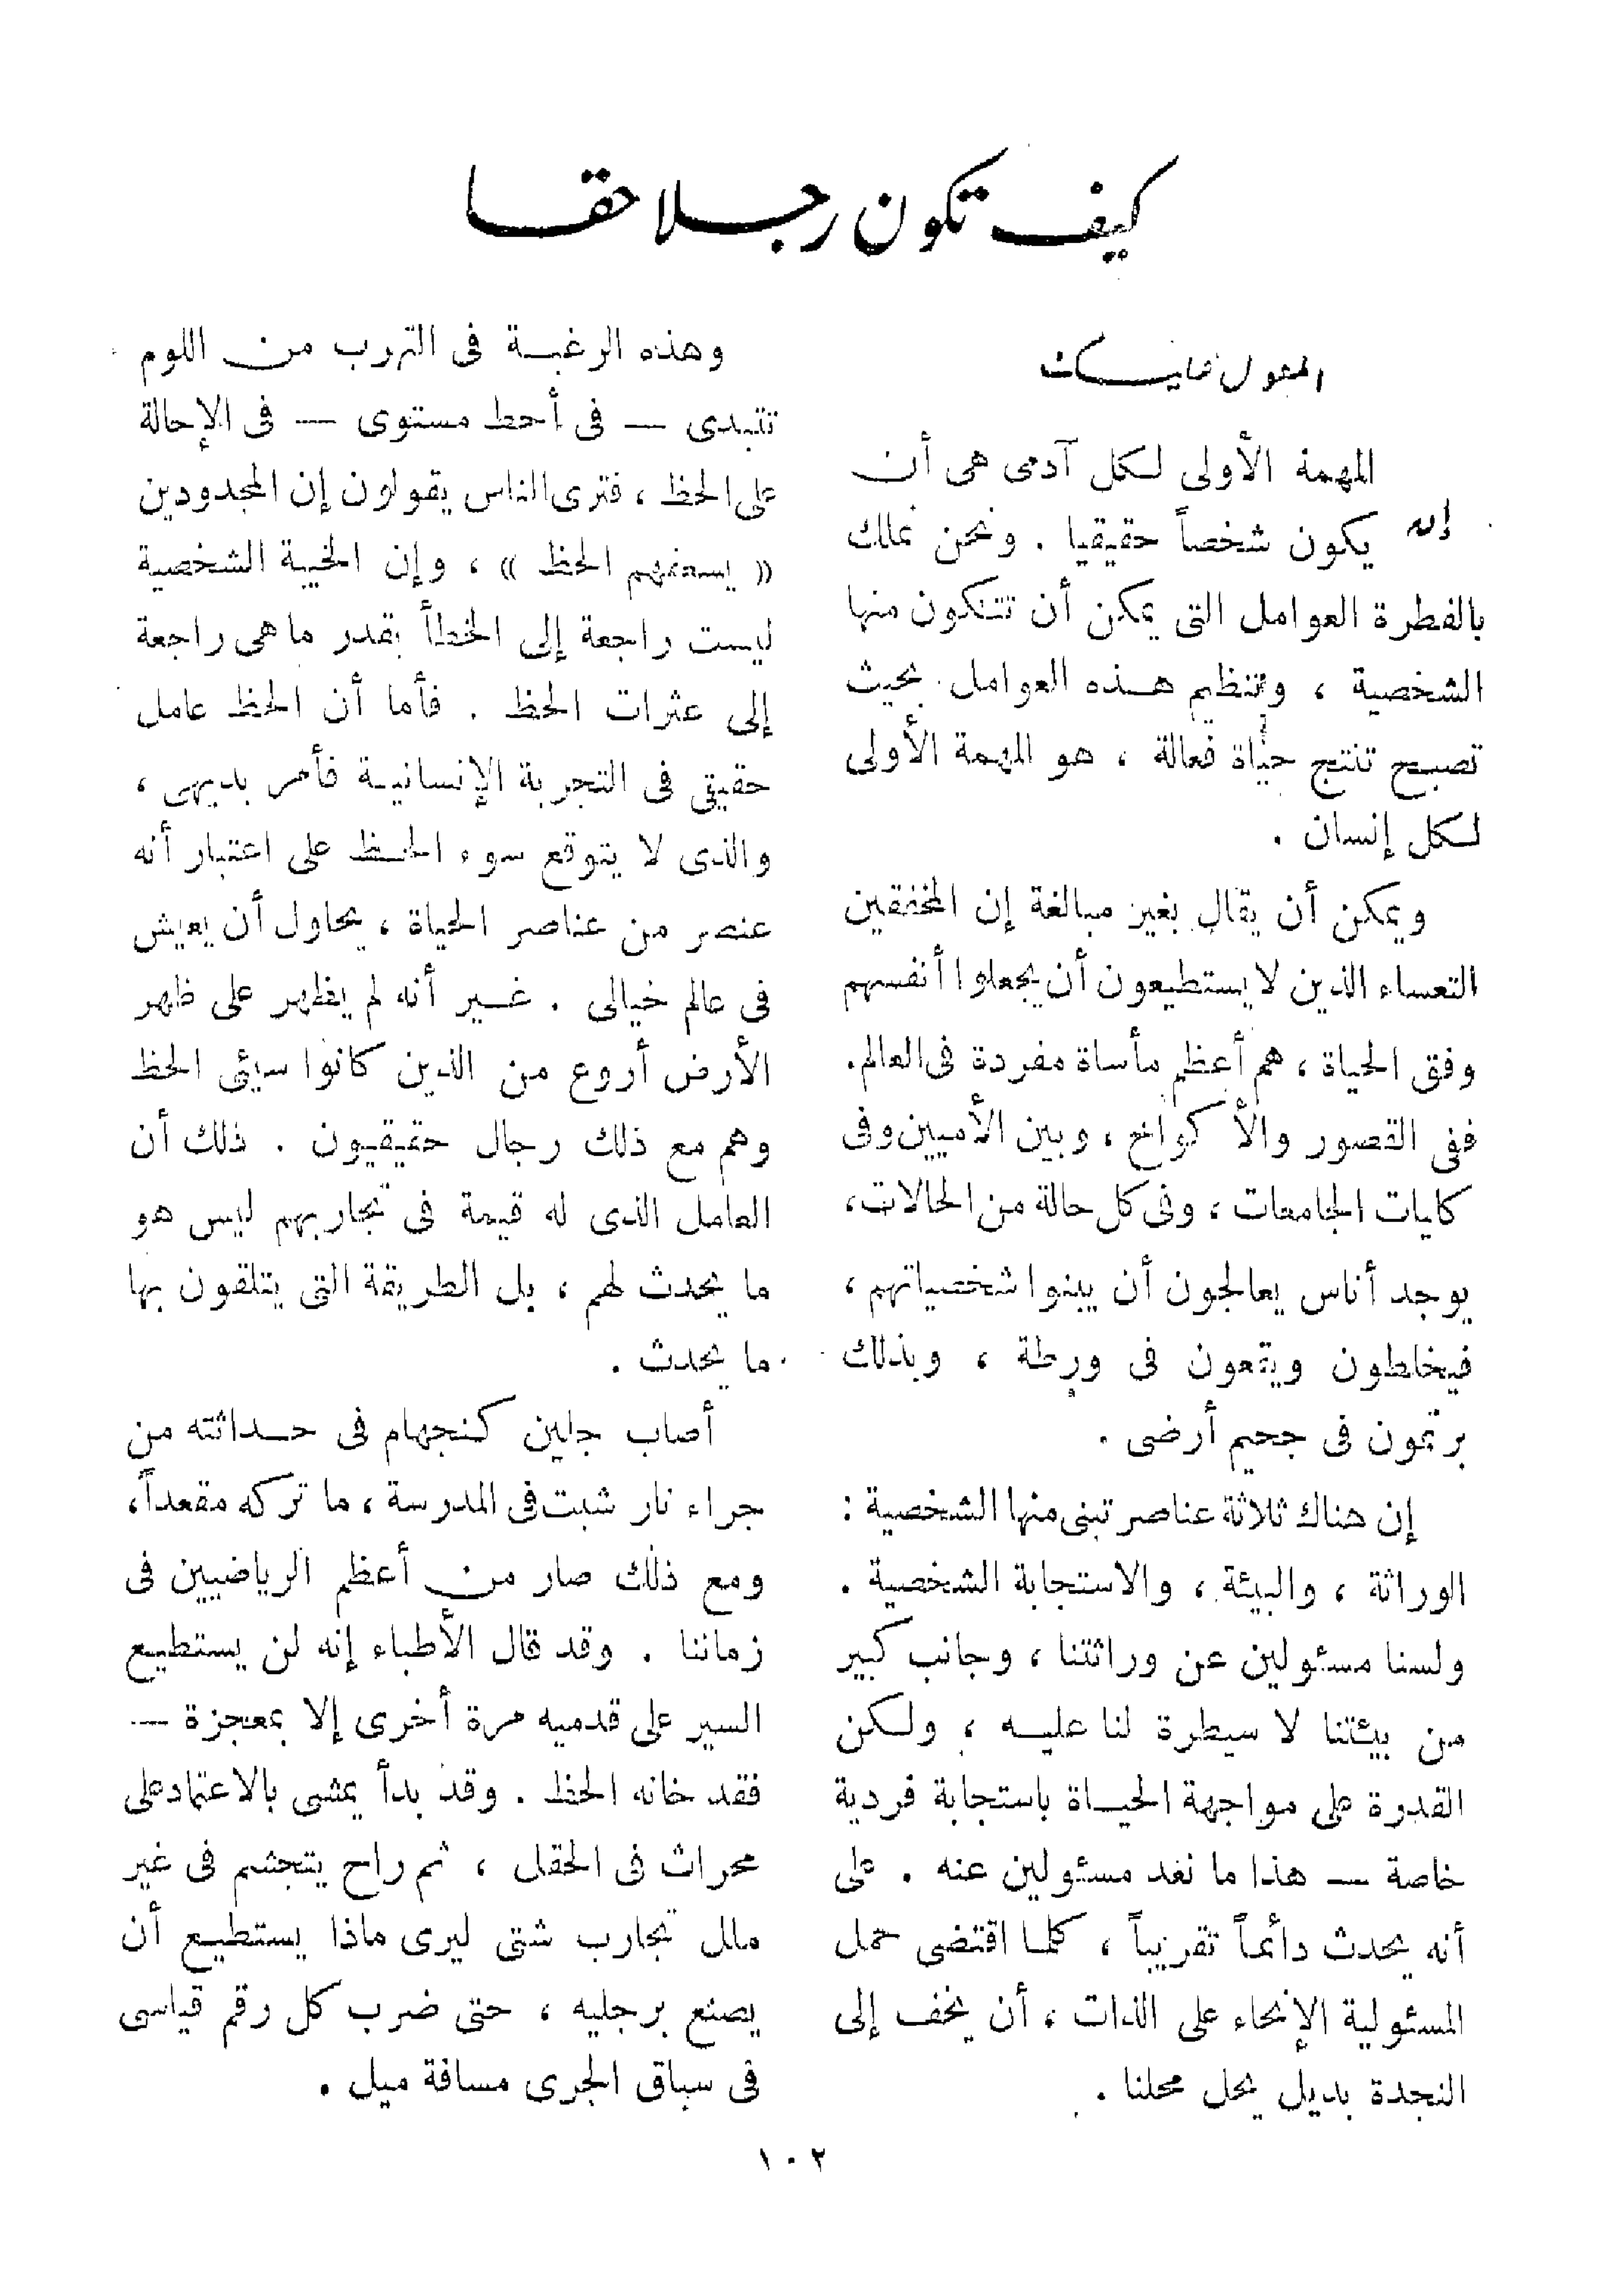 كيف تكون رجلا حقا
إن المهمة الأولى لكل آدمى هى أن
يكون شخصاً حقيقيا . ونحن نملك
بالفطرة العوامل التى يمكن أن تتكون منها
الشخصية ، وتنظيم هذه العوامل بحيث
تصبح تنتج حياة فعالة ، هو المهمة الأولى
لكل إنسان .
ويمكن أن يقال بغير مبالغة إن المخفقين
التعساء الذين لا يستطيعون أن يجعلوا أنفسهم
وفق الحياة ، هم أعظم مأساة مفردة فى العالم .
ففى القصور والأكواخ ، وبين الأميين وفى
كليات الجامعات ، وفى كل حالة من الحالات ،
يوجد أناس يعالجون أن يبنوا شخصياتهم ،
فيخلطون ويقعون فى ورطة ، وبذلك
يرتمون فى جحيم أرضى .
إن هناك ثلاثة عناصر تبنى منها الشخصية :
الوراثة ، والبيئة ، والاستجابة الشخصية .
ولسنا مسئولين عن وراثتنا ، وجانب كبير
من بيئتنا لا سيطرة لنا عليه ، ولكن
القدرة على مواجهة الحياة باستجابة فردية
خاصة — هذا ما نعد مسئولين عنه . على
أنه يحدث دائماً تقريباً ، كلما اقتضى حمل
المسئولية الإنحاء على الذات ، أن يخف إلى
النجدة بديل يحل محلنا .
وهذه الرغبة فى التهرب من اللوم
تتبدى — فى أحط مستوى — فى الإحالة
على الحظ ، فترى الناس يقولون إن المجدودين
« يسعفهم الحظ » ، وإن الخيبة الشخصية
ليست راجعة إلى الخطأ بقدر ما هى راجعة
إلى عثرات الحظ . فأما أن الحظ عامل
حقيقى فى التجربة الإنسانية فأمر بديهى ،
والذى لا يتوقع سوء الحظ على اعتبار أنه
عنصر من عناصر الحياة ، يحاول أن يعيش
فى عالم خيالى . غير أنه لم يظهر على ظهر
الأرض أروع من الذين كانوا سيئى الحظ
وهم مع ذلك رجال حقيقيون . ذلك أن
العامل الذى له قيمة فى تجاربهم ليس هو
ما يحدث لهم ، بل الطريقة التى يتلقون بها
ما يحدث .
أصاب جلين كنجهام فى حداثته من
جراء نار شبت فى المدرسة ، ما تركه مقعداً ،
ومع ذلك صار من أعظم الرياضيين فى
زماننا . وقد قال الأطباء إنه لن يستطيع
السير على قدميه مرة أخرى إلا بمعجزة —
فقد خانه الحظ . وقد بدأ يمشى بالاعتماد على
محراث فى الحقل ، ثم راح يتجشم فى غير
ملل تجارب شتى ليرى ماذا يستطيع أن
يصنع برجليه ، حتى ضرب كل رقم قياسى
فى سباق الجرى مسافة ميل .
١٠٢